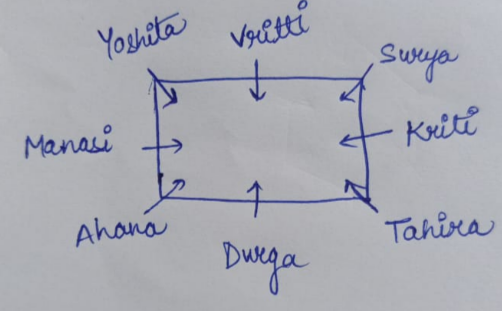 Yoshita
Vritti
Surya
Manasi
Kriti
Ahana
Durga
Tahira